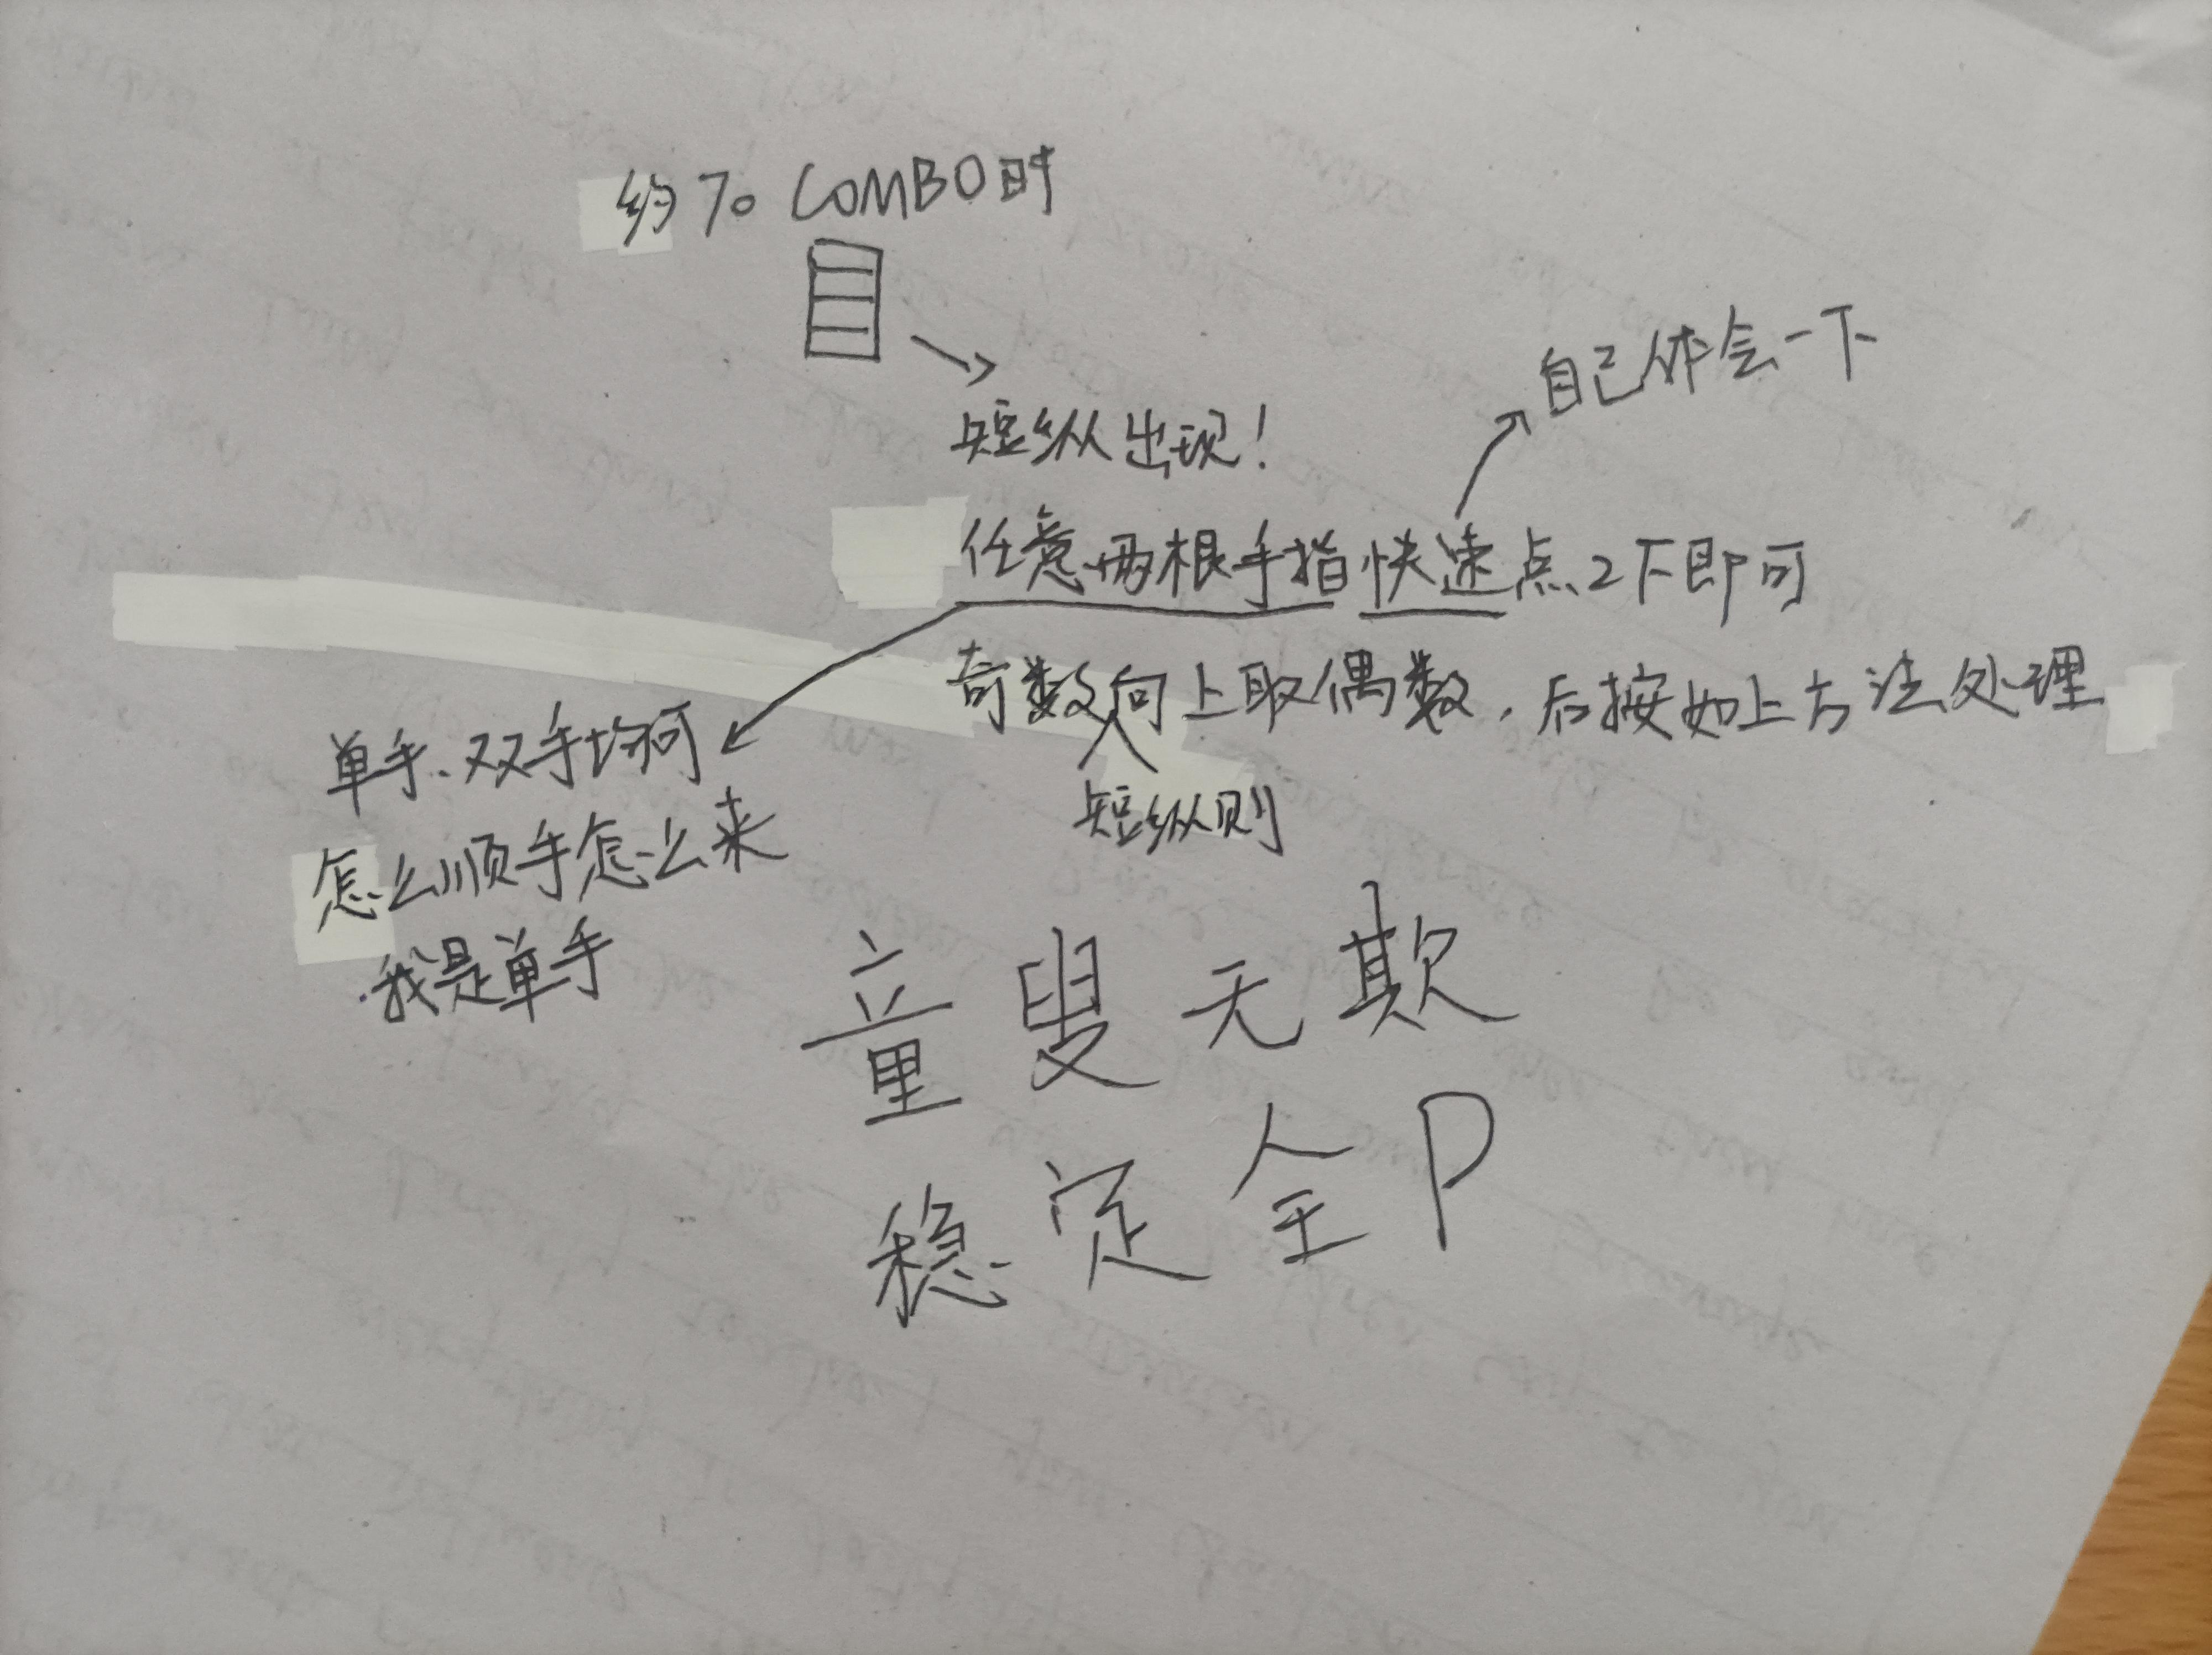 约70 COMBO时
短纵出现!
自己体会一下
任意两根手指快速点2下即可
奇数向上取偶数,后按如上方法处理
短纵则
单手、双手均可
怎么顺手怎么来
我是单手
童叟无欺
稳定全P